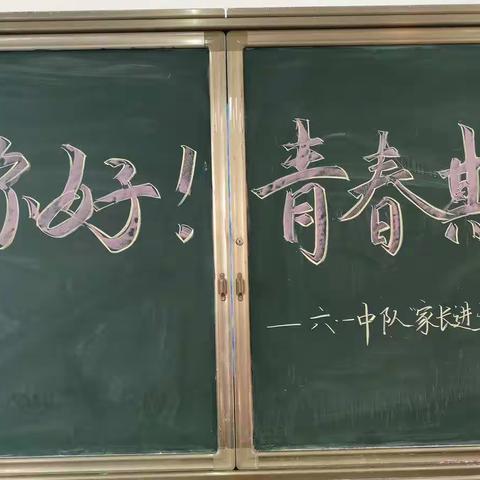 你好！青春期
—六.一中队“家长进